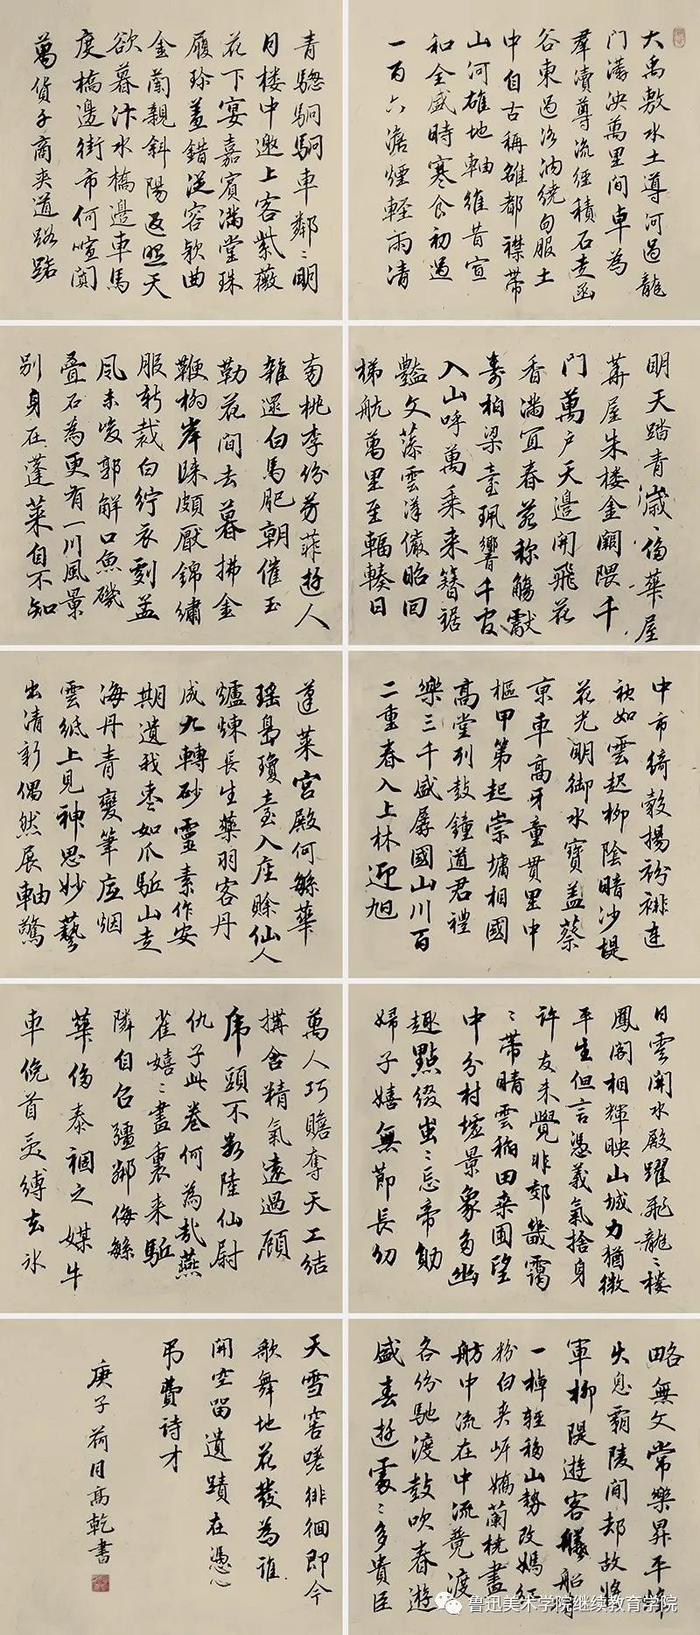 大禹敷水土導河過龍
門瀰泱萬里間卓為
群瀆尊流經積石走函
谷東過洛汭繞甸服土
中自古稱雄都襟帶
山河雄地軸維昔宣
和全盛時寒食初過
一百六澹煙輕雨清
明天踏青濊〻侈華屋
華屋朱樓金闕隈千
門萬戶天邊開飛花
香滿宜春苑稱觴獻
壽柏梁臺珮響千官
入山呼萬乘來簪裾
豔文藻雲漢儼昭回
梯航萬里至輻輳日
中市綺縠揚紛裶連
袂如雲起柳陰暗沙堤
花光明御水寶蓋蔡
京車高牙童貫里中
樞甲第起崇墉相國
高堂列鼓鐘道君禮
樂三千盛孱國山川百
二重春入上林迎旭
日雲開水殿躍飛龍〻樓
鳳閣相輝映山城力猶微
平生但言憑義氣捨身
許友未覺非郊畿靄
〻帶晴雲稻田桑園望
中分村墟景象多幽
趣點綴蚩〻忘帝勛
婦子嬉無節長幼
略無文嘗樂昇平時
失息霸陵間却故將
軍柳隄遊客艤船有
一棹輕移山勢改嫣紅
粉白夾岸嬌蘭橈畫
舫中流在中流競渡
各紛馳渡鼓吹春遊
盛春遊處〻多貴臣
青驄駉駉車鄰〻明
月樓中邀上客紫薇
花下宴嘉賓滿堂珠
履珍羞錯從容欵曲
金蘭親斜陽返照天
欲暮汴水橋邊車馬
度橋邊街市何喧闐
萬貨子商夾道路踣
南桃李紛芳菲遊人
雜遝白馬肥朝催玉
勒花間去暮拂金
鞭柳岸歸頗厭錦繡
服新裁白紵衣刻孟
風未峻郭解口魚磯
疊石為更有一川風景
別身在蓬萊自不知
蓬萊宮殿何繇華
瑤島瓊臺入座賒仙人
爐煉長生藥羽客丹
成九轉砂靈素作安
期遺我棗如瓜駈山走
海丹青變筆底烟
雲紙上見神思妙藝
出清新偶然展軸驚
萬人巧贍奪天工結
搆含精氣遠過顧
虎頭不數陸仙尉
仇子此卷何為哉燕
雀嬉〻盡裏來駈
隣自召彊鄰侮繇
華侈泰禍之媒牛
車俛首受縛去氷
天雪窖嗟徘徊即今
歌舞地花發為誰
開空留遺蹟在憑心
吊費詩才
庚子荷月高乾書
鲁迅美术学院继续教育学院